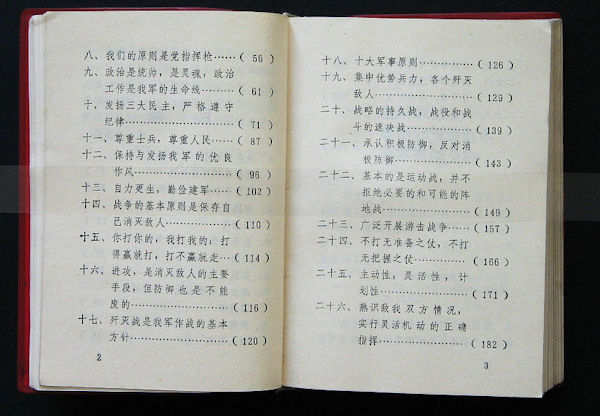 八、我们的原则是党指挥枪……( 56 )
九、政治是统帅，是灵魂，政治
工作是我军的生命线………( 61 )
十、发扬三大民主，严格遵守
纪律……………………( 71 )
十一、尊重士兵，尊重人民……( 87 )
十二、保持与发扬我军的优良
作风……………………( 96 )
十三、自力更生，勤俭建军……( 102 )
十四、战争的基本原则是保存自
己消灭敌人………………( 110 )
十五、你打你的，我打我的，打
得赢就打，打不赢就走…( 114 )
十六、进攻，是消灭敌人的主要
手段，但防御也是不能
废的……………………( 116 )
十七、歼灭战是我军作战的基本
方针……………………( 120 )
2
十八、十大军事原则…………( 126 )
十九、集中优势兵力，各个歼灭
敌人……………………( 129 )
二十、战略的持久战，战役和战
斗的速决战………………( 139 )
二十一、承认积极防御，反对消
极防御…………………( 143 )
二十二、基本的是运动战，并不
拒绝必要的和可能的阵
地战……………………( 149 )
二十三、广泛开展游击战争……( 157 )
二十四、不打无准备之仗，不打
无把握之仗………………( 166 )
二十五、主动性，灵活性，计
划性……………………( 171 )
二十六、熟识敌我双方情况，
实行灵活机动的正确
指挥……………………( 182 )
3